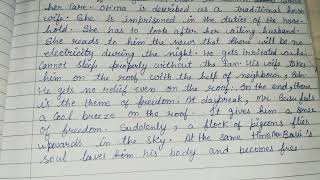 her care. Otima is described as a traditional house
wife. She is imprisoned in the duties of the house
hold. She has to look after her ailing husband.
She reads to him the news that there will be no
electricity during the night. He gets irritated and
cannot sleep properly without the fan. His wife takes
him on the roof with the help of neighbour,
He gets no relief even on the roof. On the end, there
is the theme of freedom. At daybreak, Mr Basu feels
a cool breeze on the roof. It gives him a sense
of freedom. Suddenly, a flock of pigeons flies
upwards in the sky. At the same time Mr Basu's
soul leaves his body and becomes free